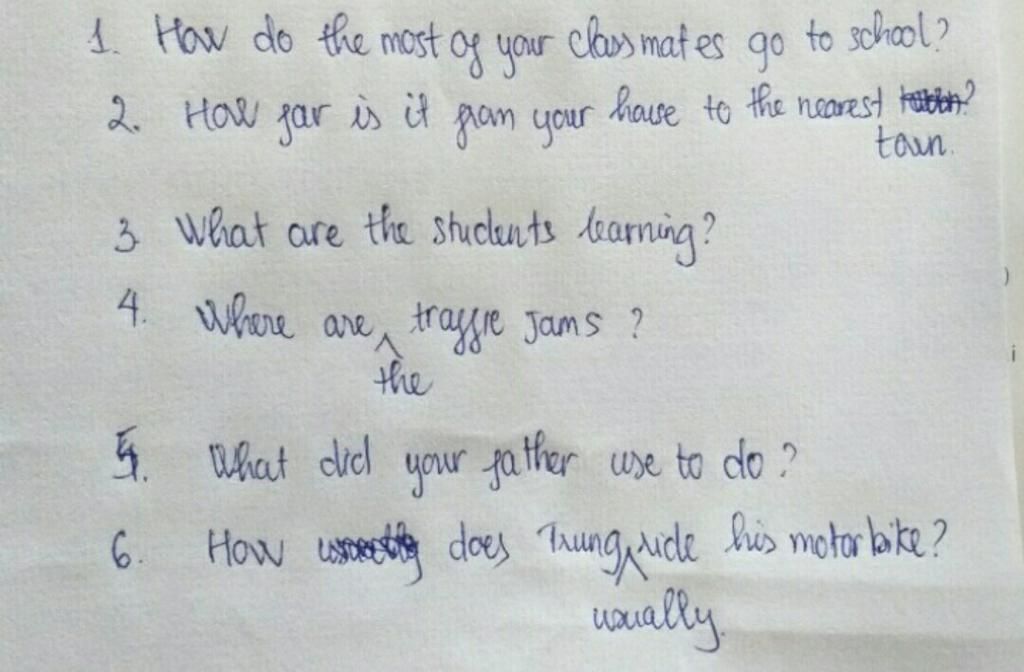 1. How do the most of your classmates go to school?
2. How far is it from your house to the nearest ?
town.
3 What are the students learning?
4. Where are traffic jams ?
the
5. What did your father use to do ?
6. How does Trung ride his motorbike?
usually.